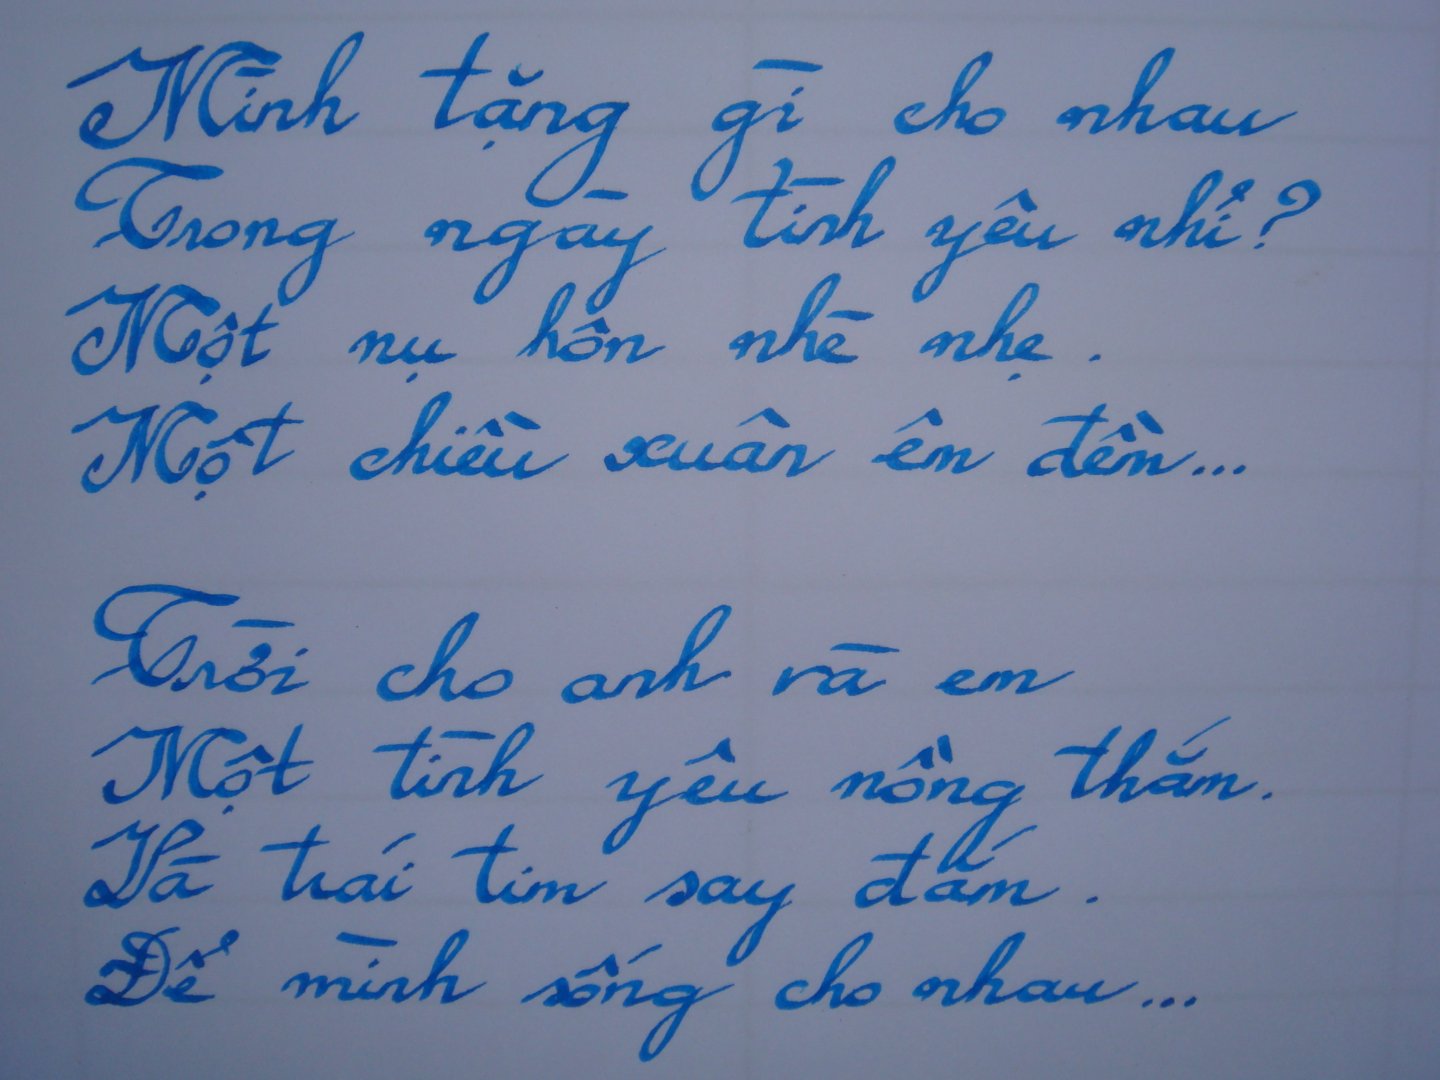 Mình tặng gì cho nhau
Trong ngày tình yêu nhỉ?
Một nụ hôn nhè nhẹ.
Một chiều xuân êm đềm...
Trời cho anh và em
Một tình yêu nồng thắm.
Và trái tim say đắm.
Để mình sống cho nhau...